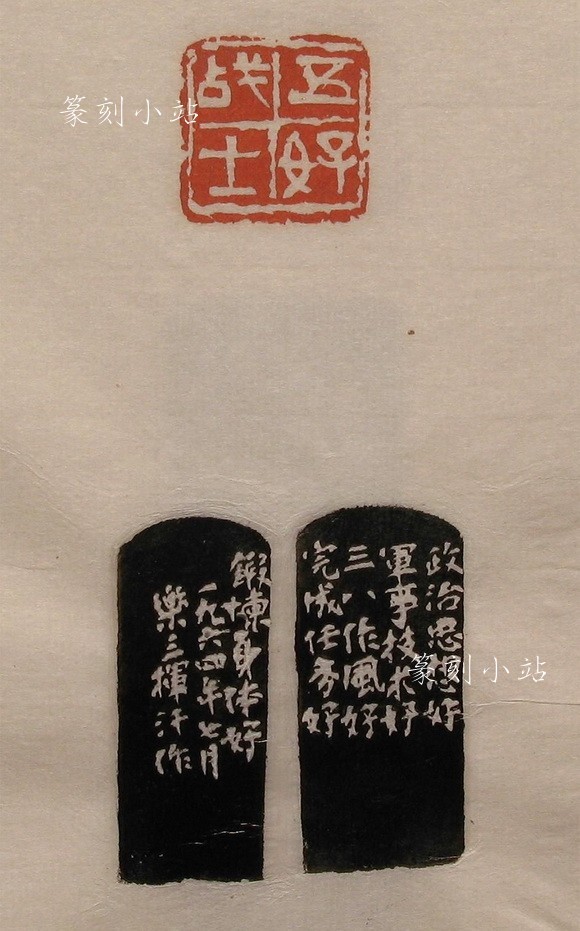 五好
战士
篆刻小站
政治思想好
軍事技术好
三八作風好
完成任务好
篆刻小站
鍛煉身体好
一九六四年七月
樂三揮汗作